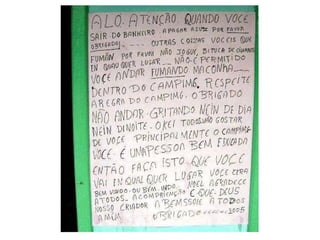 ALO. ATENÇÃO QUANDO VOCE
SAIR DO BANHEIRO APAGAR A LUZ POR FAVOR
OBRIGADO OUTRAS COIZAS VOCEIS QUE
FUMAN POR FAVOR NÃO JOGUE, BITUCA DE
EN QUAU QUER LUGAR NÃO É PERMITIDO
VOCE ANDAR FUMANDO MACONHA
DENTRO DO CAMPING. RESPEITE
A REGRA DO CAMPING. OBRIGADO
NÃO ANDAR GRITANDO NEIN DE DIA
NEIN DINOITE. OKEI TODOS VÃO GOSTAR
DE VOCE PRINCIPALMENTE O CAMPING
VOCE E UMA PESSOA BEM EIXADA
ENTÃO FAÇA ISTO QUE VOCE
VAI EN QUALQUER LUGAR VOCE CERA
BEM VINDO OU BEM. INDO. NOEL AGRADECE
A TODOS. A COMPRIENÇÃO E QUE DEUS
NOSSO CRIADOR ABEMSSOIE A TODOS
AMÚM OBRIGADO 2005